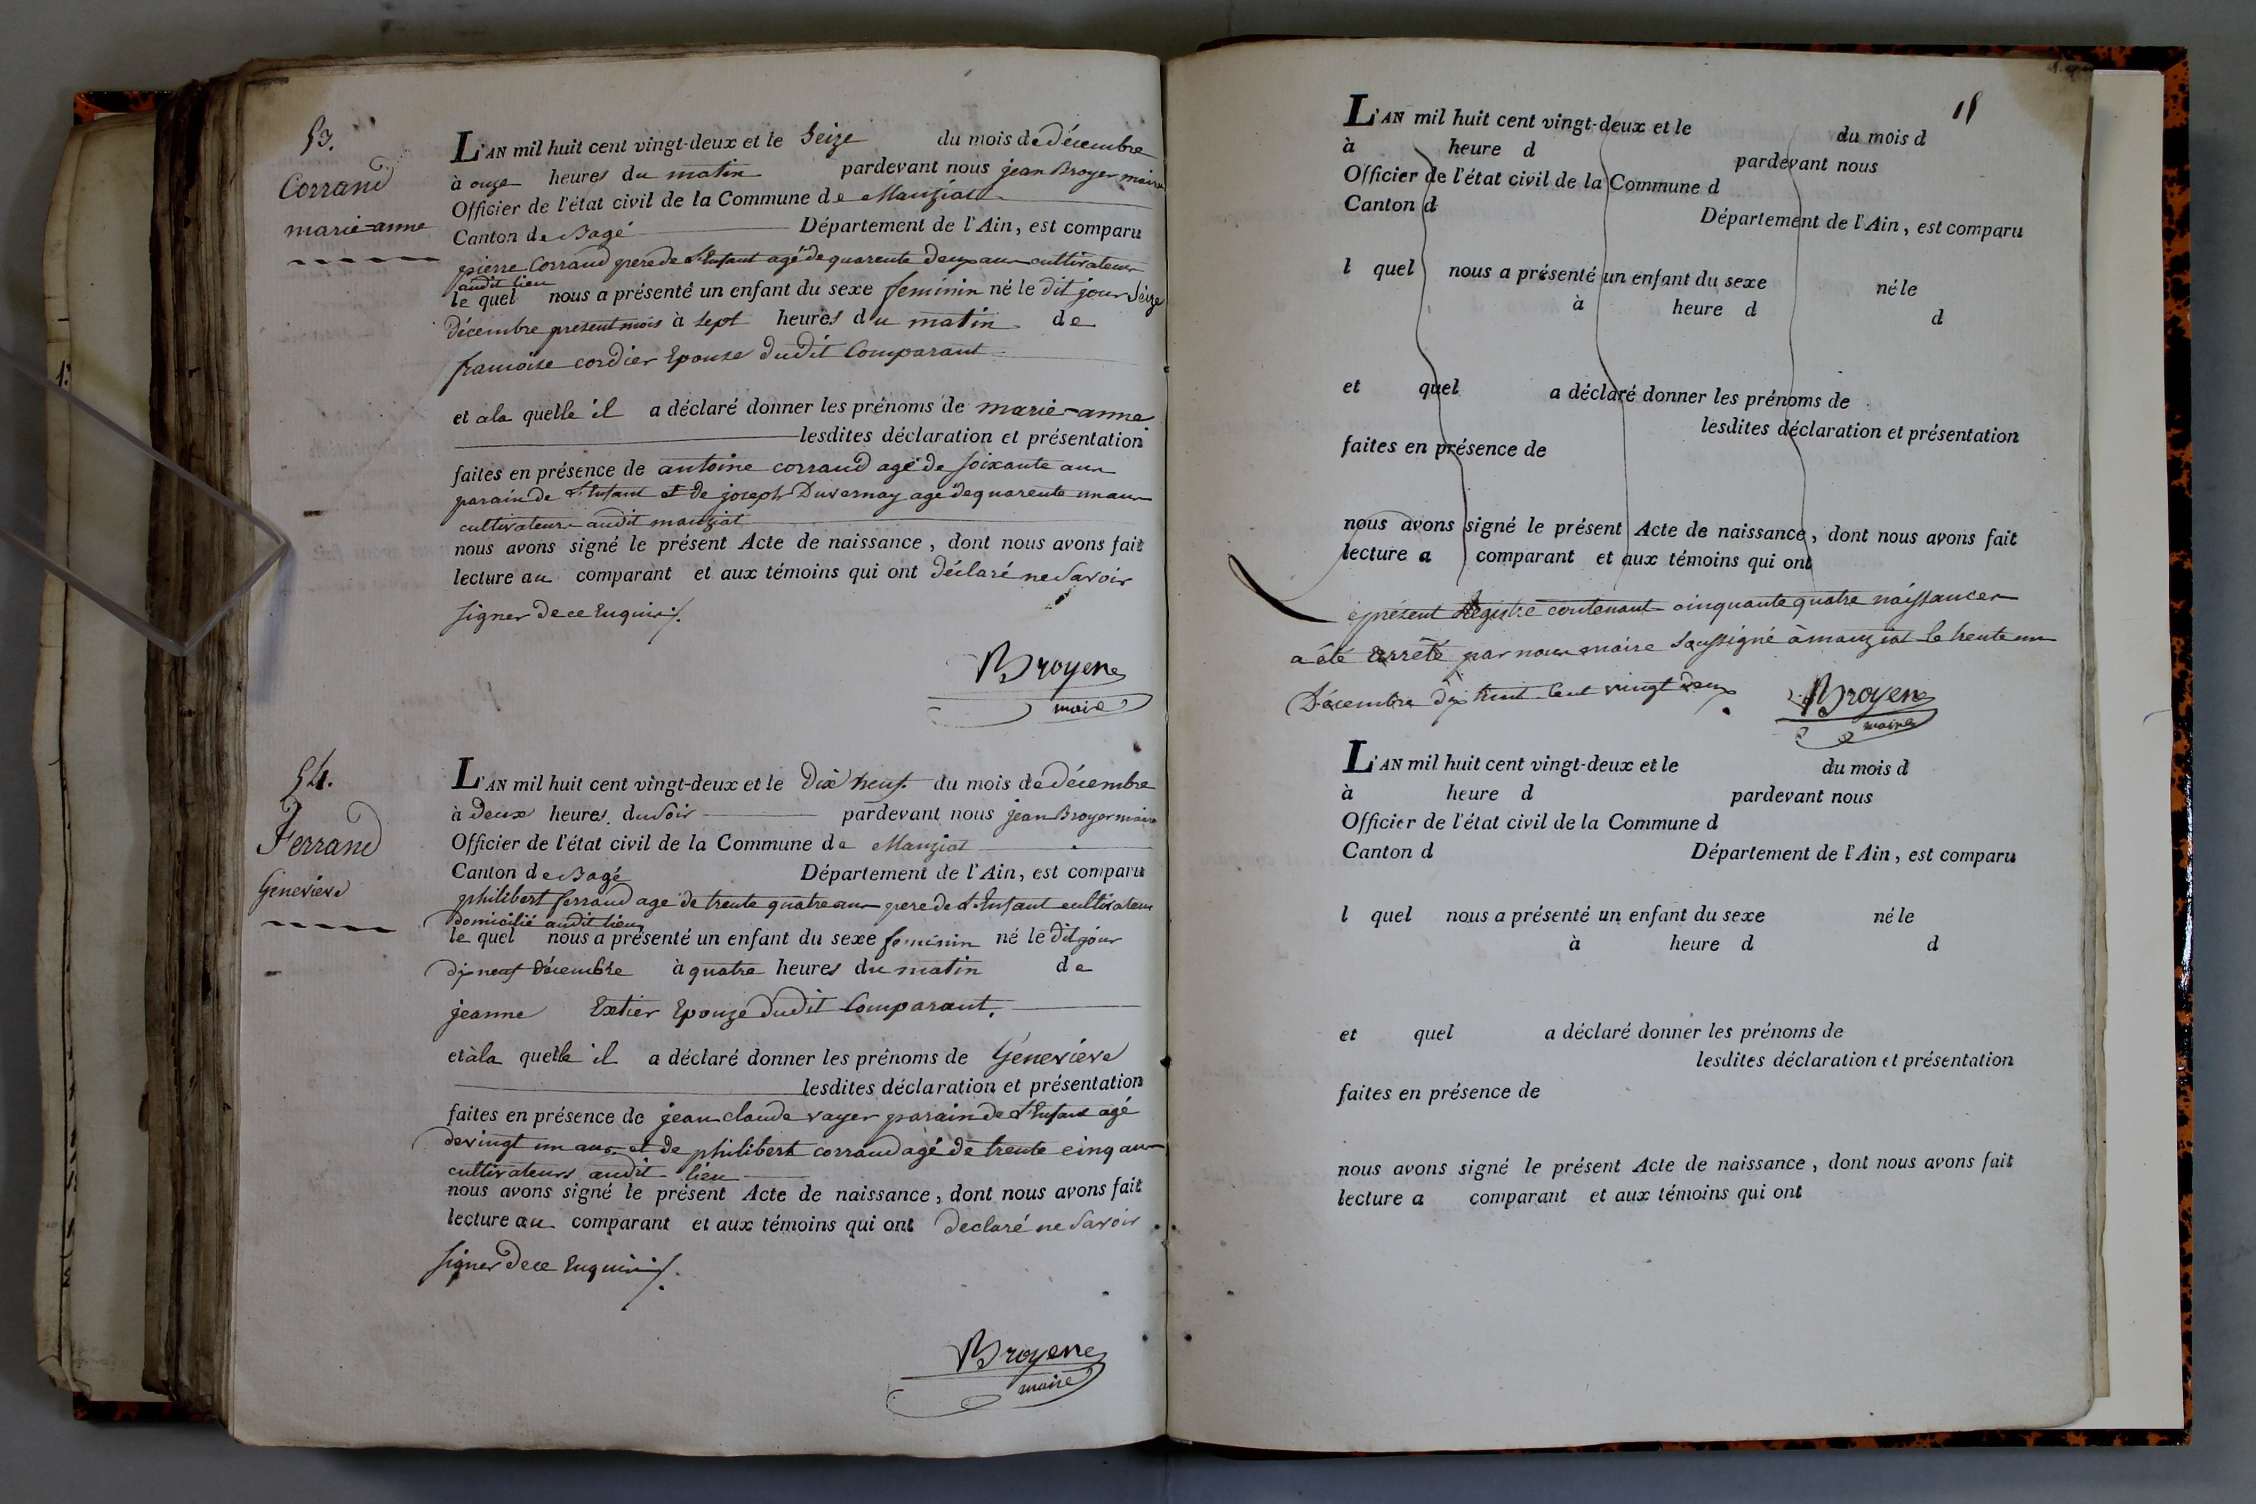 53.
Corrand
marie-anne
L'AN mil huit cent vingt-deux et le Seize du mois de décembre
à onze heures du matin pardevant nous jean Broyer maire
Officier de l'état civil de la Commune de Manziat
Canton de Bagé Département de l'Ain, est comparu
pierre Corrand pere de l'Enfant agé de quarente deux ans cultivateur
audit lieu
le quel nous a présenté un enfant du sexe feminin né le dit jour Seize
décembre present mois à sept heures du matin de
francoise cordier Epouse dudit Comparant
et a la quelle il a déclaré donner les prénoms de marie-anne
lesdites déclaration et présentation
faites en présence de antoine corrand agé de soixante ans
parain de l'Enfant et de joseph Duvernay agé de quarente un ans
cultivateurs audit manziat
nous avons signé le présent Acte de naissance, dont nous avons fait
lecture au comparant et aux témoins qui ont déclaré ne Savoir
signer de ce Enquis /.
Broyer
maire
54.
Ferrand
Genevieve
L'AN mil huit cent vingt-deux et le dix neuf du mois de décembre
à deux heures du Soir pardevant nous jean Broyer maire
Officier de l'état civil de la Commune de Manziat
Canton de Bagé Département de l'Ain, est comparu
philibert ferrand age de trente quatre ans pere de l'Enfant cultivateur
domicilié audit lieu
le quel nous a présenté un enfant du sexe feminin né le dit jour
dix neuf décembre à quatre heures du matin de
jeanne Extier Epouze dudit Comparant.
et à la quelle il a déclaré donner les prénoms de Génevieve
lesdites déclaration et présentation
faites en présence de jean claude vayer parain de l'Enfant agé
de vingt un ans et de philibert corrand agé de trente cinq ans
cultivateurs audit lieu
nous avons signé le présent Acte de naissance, dont nous avons fait
lecture au comparant et aux témoins qui ont declaré ne Savoir
signer de ce Enquis /.
Broyer
maire
L'AN mil huit cent vingt-deux et le du mois d
à heure d pardevant nous
Officier de l'état civil de la Commune d
Canton d Département de l'Ain, est comparu
l quel nous a présenté un enfant du sexe né le
à heure d d
et quel a déclaré donner les prénoms de
lesdites déclaration et présentation
faites en présence de
nous avons signé le présent Acte de naissance, dont nous avons fait
lecture a comparant et aux témoins qui ont
Le présent Registre contenant cinquante quatre naissances
a été arrêté par nous maire Soussigné à manziat le trente un
Décembre dix huit Cent vingt deux
Broyer
maire
L'AN mil huit cent vingt-deux et le du mois d
à heure d pardevant nous
Officier de l'état civil de la Commune d
Canton d Département de l'Ain, est comparu
l quel nous a présenté un enfant du sexe né le
à heure d d
et quel a déclaré donner les prénoms de
lesdites déclaration et présentation
faites en présence de
nous avons signé le présent Acte de naissance, dont nous avons fait
lecture a comparant et aux témoins qui ont